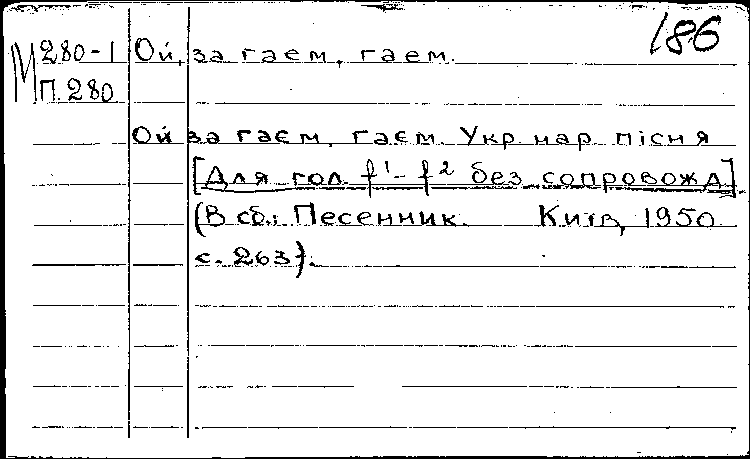 186
М 280-1 Ой, за гаем, гаем.
П.280
Ой за гаєм, гаєм. Укр нар пісня
[Для гол f¹- f² без сопровожд]
(В сб.: Песенник. Київ, 1950
с. 263).